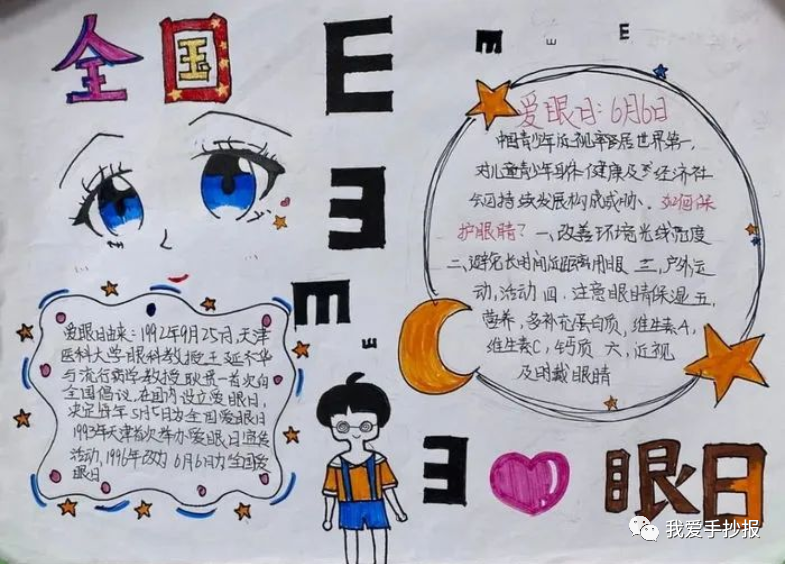 全国
E
E
E
E
E
E
E
E
爱眼日:6月6日
中国青少年近视率居世界第一,
对儿童青少年身体健康及 经济社
会可持续发展构成威胁、如何保
护眼睛?一、改善环境光线亮度
二、避免长时间近距离用眼 三、户外运
动,活动 四、注意眼睛保湿 五、
营养,多补充蛋白质,维生素A,
维生素C,钙质 六、近视
及时戴眼睛
爱眼日由来:1992年9月25日,天津
医科大学眼科教授王延华
与流行病学教授耿贯一首次向
全国倡议,在国内设立爱眼日,
决定每年5月5日为全国爱眼日
1993年天津首次举办爱眼日宣传
活动,1996年改为6月6日为全国爱
眼日
眼日
我爱手抄报